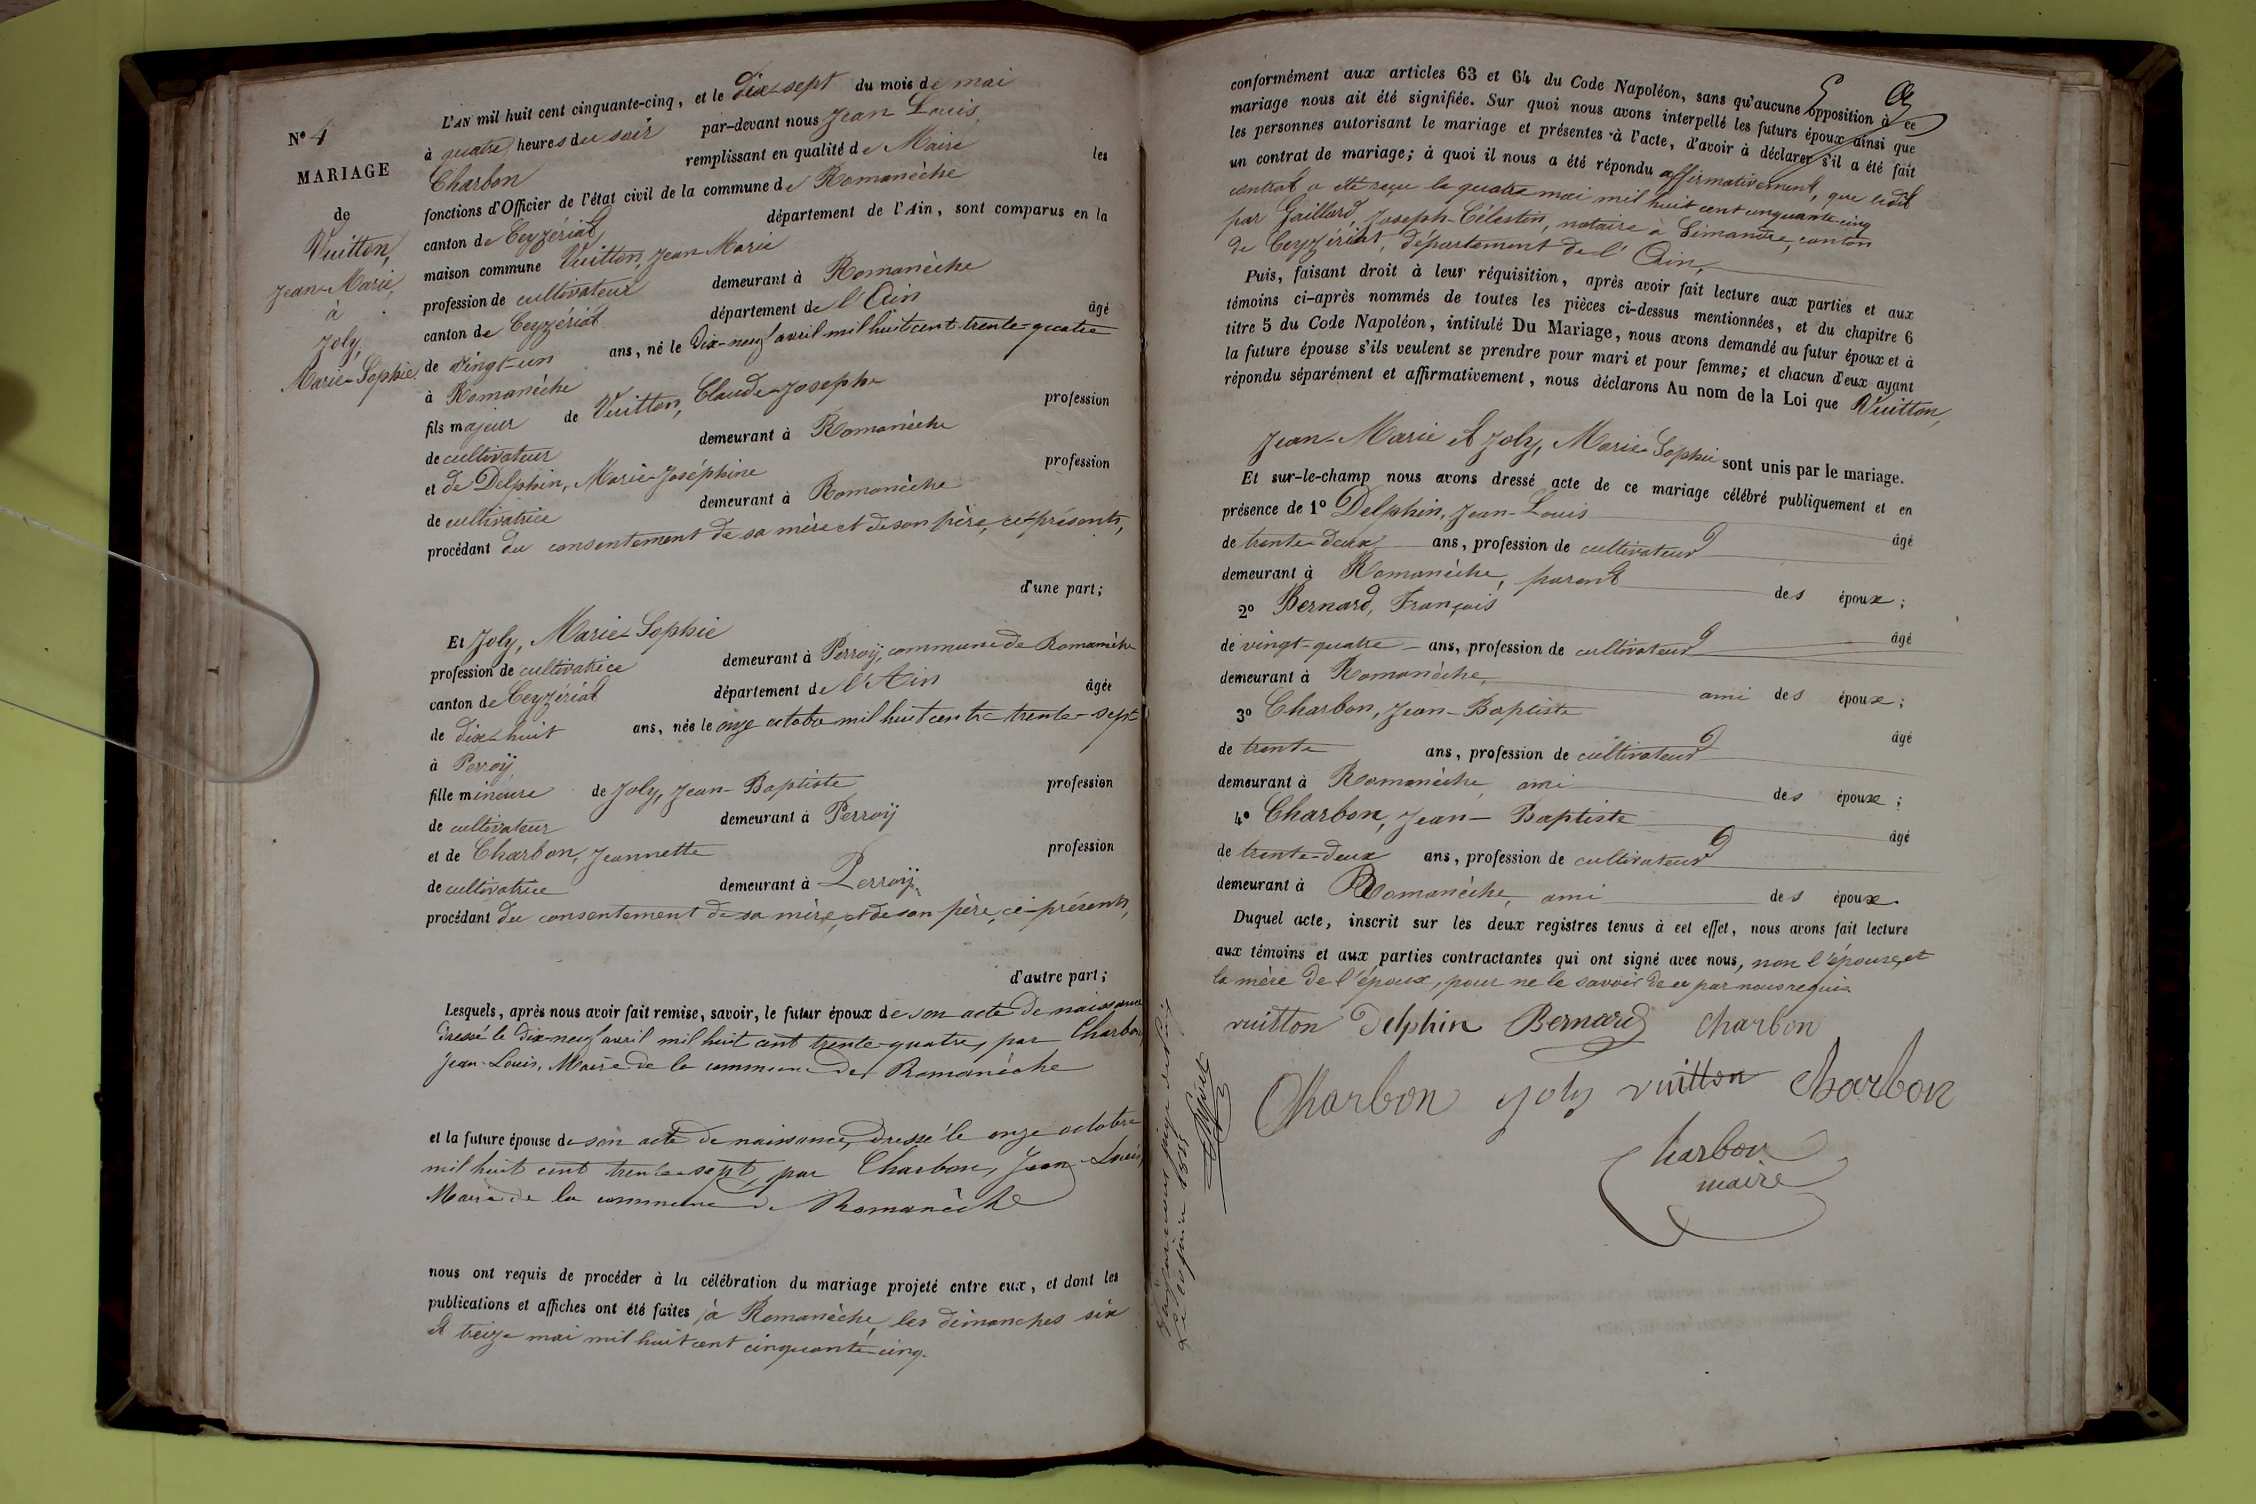 N° 4
MARIAGE
de
Vuitton,
Jean-Marie,
à
Joly,
Marie-Sophie
L'AN mil huit cent cinquante-cinq, et le dix-sept du mois de mai
à quatre heures du soir par-devant nous Jean Louis
Charbon remplissant en qualité de Maire les
fonctions d'Officier de l'état civil de la commune de Romanèche
canton de Ceyzériat département de l'Ain, sont comparus en la
maison commune Vuitton, Jean-Marie
profession de cultivateur demeurant à Romanèche
canton de Ceyzériat département de l'Ain âgé
de vingt-un ans, né le dix-neuf avril mil huit cent trente-quatre
à Romanèche
fils majeur de Vuitton, Claude-Joseph profession
de cultivateur demeurant à Romanèche
et de Delphin, Marie-Joséphine profession
de cultivatrice demeurant à Romanèche
procédant du consentement de sa mère et de son père, ci-présents,
d'une part;
Et Joly, Marie-Sophie
profession de cultivatrice demeurant à Perroÿ, commune de Romanèche
canton de Ceyzériat département de l'Ain âgée
de dix-huit ans, née le onze octobre mil huit cent trente-sept
à Perroÿ
fille mineure de Joly, Jean-Baptiste profession
de cultivateur demeurant à Perroÿ
et de Charbon, Jeannette profession
de cultivatrice demeurant à Perroÿ
procédant du consentement de sa mère, et de son père, ci-présents,
d'autre part;
Lesquels, après nous avoir fait remise, savoir, le futur époux de son acte de naissance
dressé le dix-neuf avril mil huit cent trente-quatre, par Charbon
Jean-Louis, Maire de la commune de Romanèche
et la future épouse de son acte de naissance, dressé le onze octobre
mil huit cent trente-sept, par Charbon, Jean-Louis,
Maire de la commune de Romanèche
nous ont requis de procéder à la célébration du mariage projeté entre eux, et dont les
publications et affiches ont été faites à Romanèche, les dimanches six
et treize mai mil huit cent cinquante-cinq.
conformément aux articles 63 et 64 du Code Napoléon, sans qu'aucune opposition à ce
mariage nous ait été signifiée. Sur quoi nous avons interpellé les futurs époux ainsi que
les personnes autorisant le mariage et présentes à l'acte, d'avoir à déclarer s'il a été fait
un contrat de mariage; à quoi il nous a été répondu affirmativement, que ledit
contrat a été reçu le quatre mai mil huit cent cinquante-cinq
par Gaillard, Joseph-Célestin, notaire à Simandre, canton
de Ceyzériat, département de l'Ain,
Puis, faisant droit à leur réquisition, après avoir fait lecture aux parties et aux
témoins ci-après nommés de toutes les pièces ci-dessus mentionnées, et du chapitre 6
titre 5 du Code Napoléon, intitulé Du Mariage, nous avons demandé au futur époux et à
la future épouse s'ils veulent se prendre pour mari et pour femme; et chacun d'eux ayant
répondu séparément et affirmativement, nous déclarons Au nom de la Loi que Vuitton,
Jean-Marie et Joly, Marie-Sophie sont unis par le mariage.
Et sur-le-champ nous avons dressé acte de ce mariage célébré publiquement et en
présence de 1° Delphin, Jean-Louis âgé
de trente-deux ans, profession de cultivateur
demeurant à Romanèche, parent des époux;
2° Bernard, François âgé
de vingt-quatre ans, profession de cultivateur
demeurant à Romanèche, ami des époux;
3° Charbon, Jean-Baptiste âgé
de trente ans, profession de cultivateur
demeurant à Romanèche, ami des époux;
4° Charbon, Jean-Baptiste âgé
de trente-deux ans, profession de cultivateur
demeurant à Romanèche, ami des époux.
Duquel acte, inscrit sur les deux registres tenus à cet effet, nous avons fait lecture
aux témoins et aux parties contractantes qui ont signé avec nous, non l'épouse, et
la mère de l'époux, pour ne le savoir de ce par nous requis
vuitton Delphin Bernard charbon
Charbon joly vuitton charbon
charbon
maire